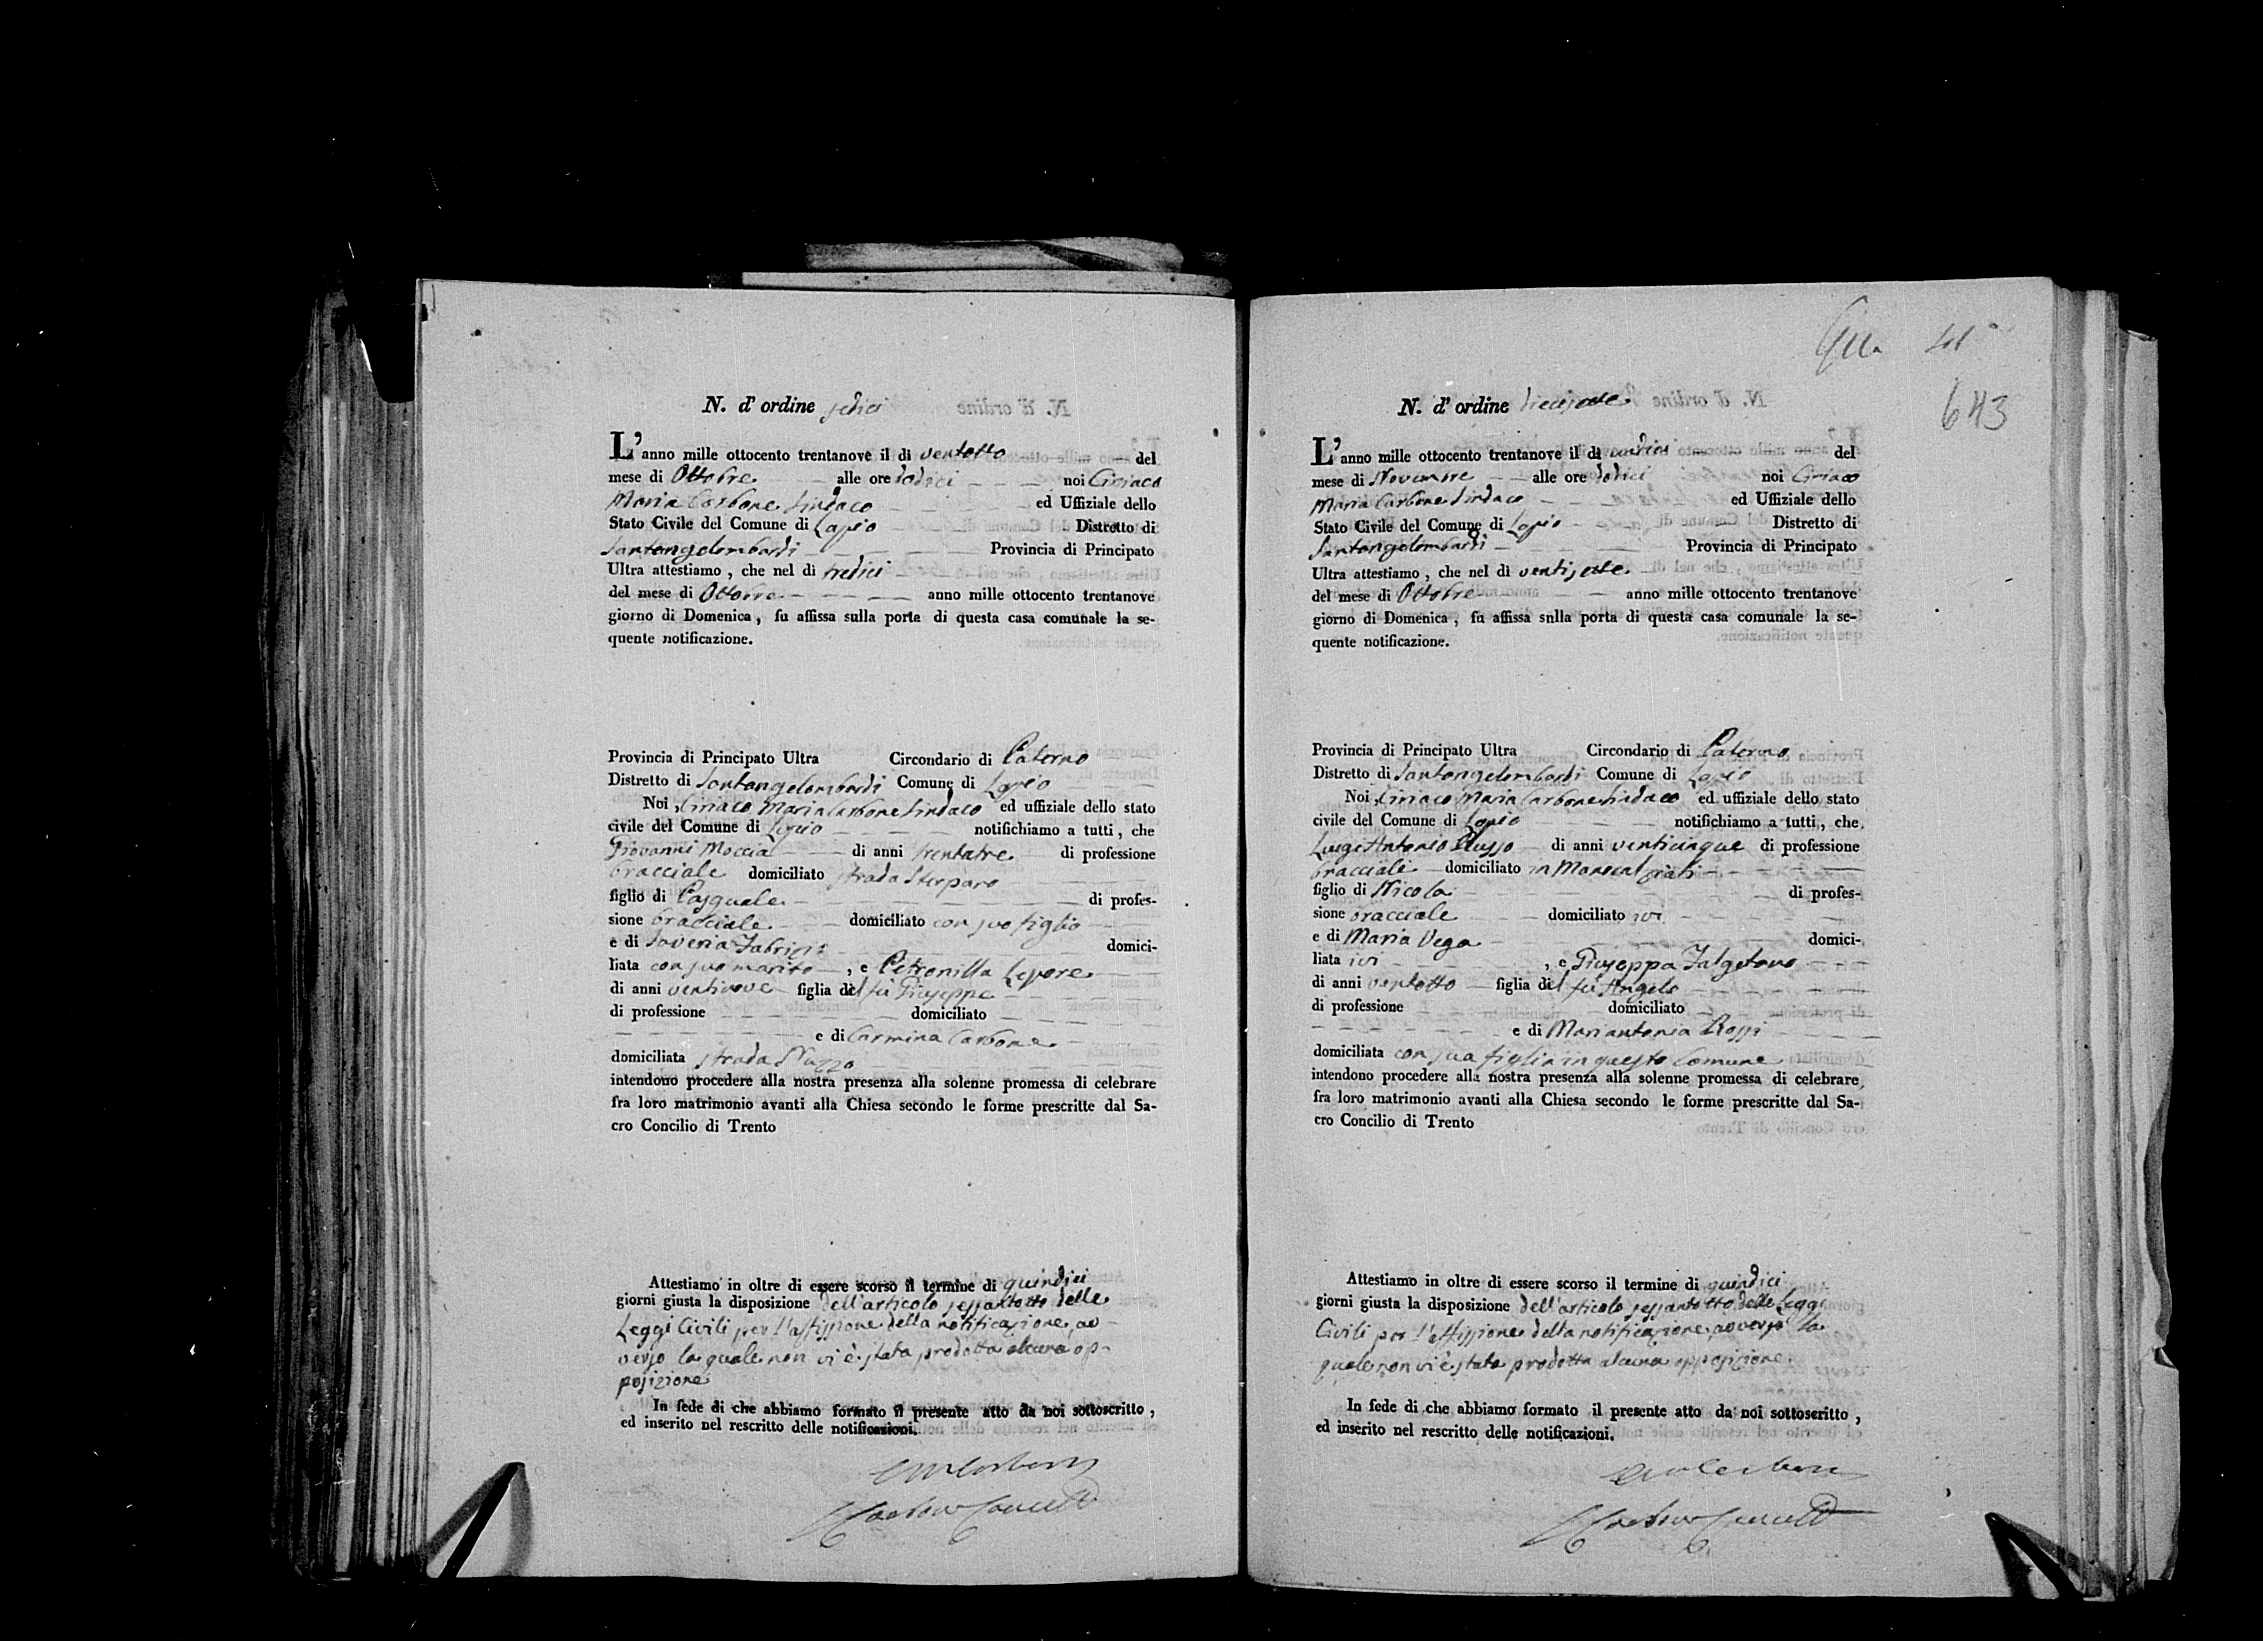 N. d' ordine sedici
L' anno mille ottocento trentanove il dì ventotto del
mese di Ottobre alle ore dodici noi Ciriaco
Maria Carbone Sindaco ed Uffiziale dello
Stato Civile del Comune di Lapio Distretto di
Santangelombardi Provincia di Principato
Ultra attestiamo, che nel dì tredici
del mese di Ottobre anno mille ottocento trentanove
giorno di Domenica, fu affissa sulla porta di questa casa comunale la se-
quente notificazione.
Provincia di Principato Ultra Circondario di Paterno
Distretto di Santangelombardi Comune di Lapio
Noi, Ciriaco Maria Carbone Sindaco ed uffiziale dello stato
civile del Comune di Lapio notifichiamo a tutti, che
Giovanni Moccia di anni trentatre di professione
bracciale domiciliato strada Sterparo
figlio di Pasquale di profes-
sione bracciale domiciliato con suo figlio
e di Saveria Fabrizi domici-
liata con suo marito, e Petronilla Lepore
di anni ventinove figlia del fù Giuseppe
di professione domiciliato
e di Carmina Carbone
domiciliata strada
intendono procedere alla nostra presenza alla solenne promessa di celebrare
fra loro matrimonio avanti alla Chiesa secondo le forme prescritte dal Sa-
cro Concilio di Trento
Attestiamo in oltre di essere scorso il termine di quindici
giorni giusta la disposizione dell'articolo sessantotto delle
Leggi Civili per l'affissione della notificazione, av-
verso la quale non vi è stata prodotta alcuna op-
posizione
In fede di che abbiamo formato il presente atto da noi sottoscritto,
ed inserito nel rescritto delle notificazioni.
643
N. d' ordine diecisette
L' anno mille ottocento trentanove il dì undici del
mese di Novembre alle ore dodici noi Ciriaco
Maria Carbone Sindaco ed Uffiziale dello
Stato Civile del Comune di Lapio Distretto di
Santangelombardi Provincia di Principato
Ultra attestiamo, che nel dì ventisette
del mese di Ottobre anno mille ottocento trentanove
giorno di Domenica, fu affissa snlla porta di questa casa comunale la se-
quente notificazione.
Provincia di Principato Ultra Circondario di Paterno
Distretto di Santangelombardi Comune di Lapio
Noi, Ciriaco Maria Carbone Sindaco ed uffiziale dello stato
civile del Comune di Lapio notifichiamo a tutti, che
Luigi Antonio Russo di anni venticinque di professione
bracciale domiciliato in Manocalzati
figlio di Nicola di profes-
sione bracciale domiciliato ivi
e di Maria Vega domici-
liata ivi, e Giuseppa Falgetano
di anni ventotto figlia del fù Angelo
di professione domiciliato
e di Mariantonia Rossi
domiciliata con sua figlia in questo Comune
intendono procedere alla nostra presenza alla solenne promessa di celebrare
fra loro matrimonio avanti alla Chiesa secondo le forme prescritte dal Sa-
cro Concilio di Trento
Attestiamo in oltre di essere scorso il termine di quindici
giorni giusta la disposizione dell'articolo sessantotto delle Leggi
Civili per l'affissione della notificazione, avverso la
quale non vi è stata prodotta alcuna opposizione.
In fede di che abbiamo formato il presente atto da noi sottoscritto,
ed inserito nel rescritto delle notificazioni.